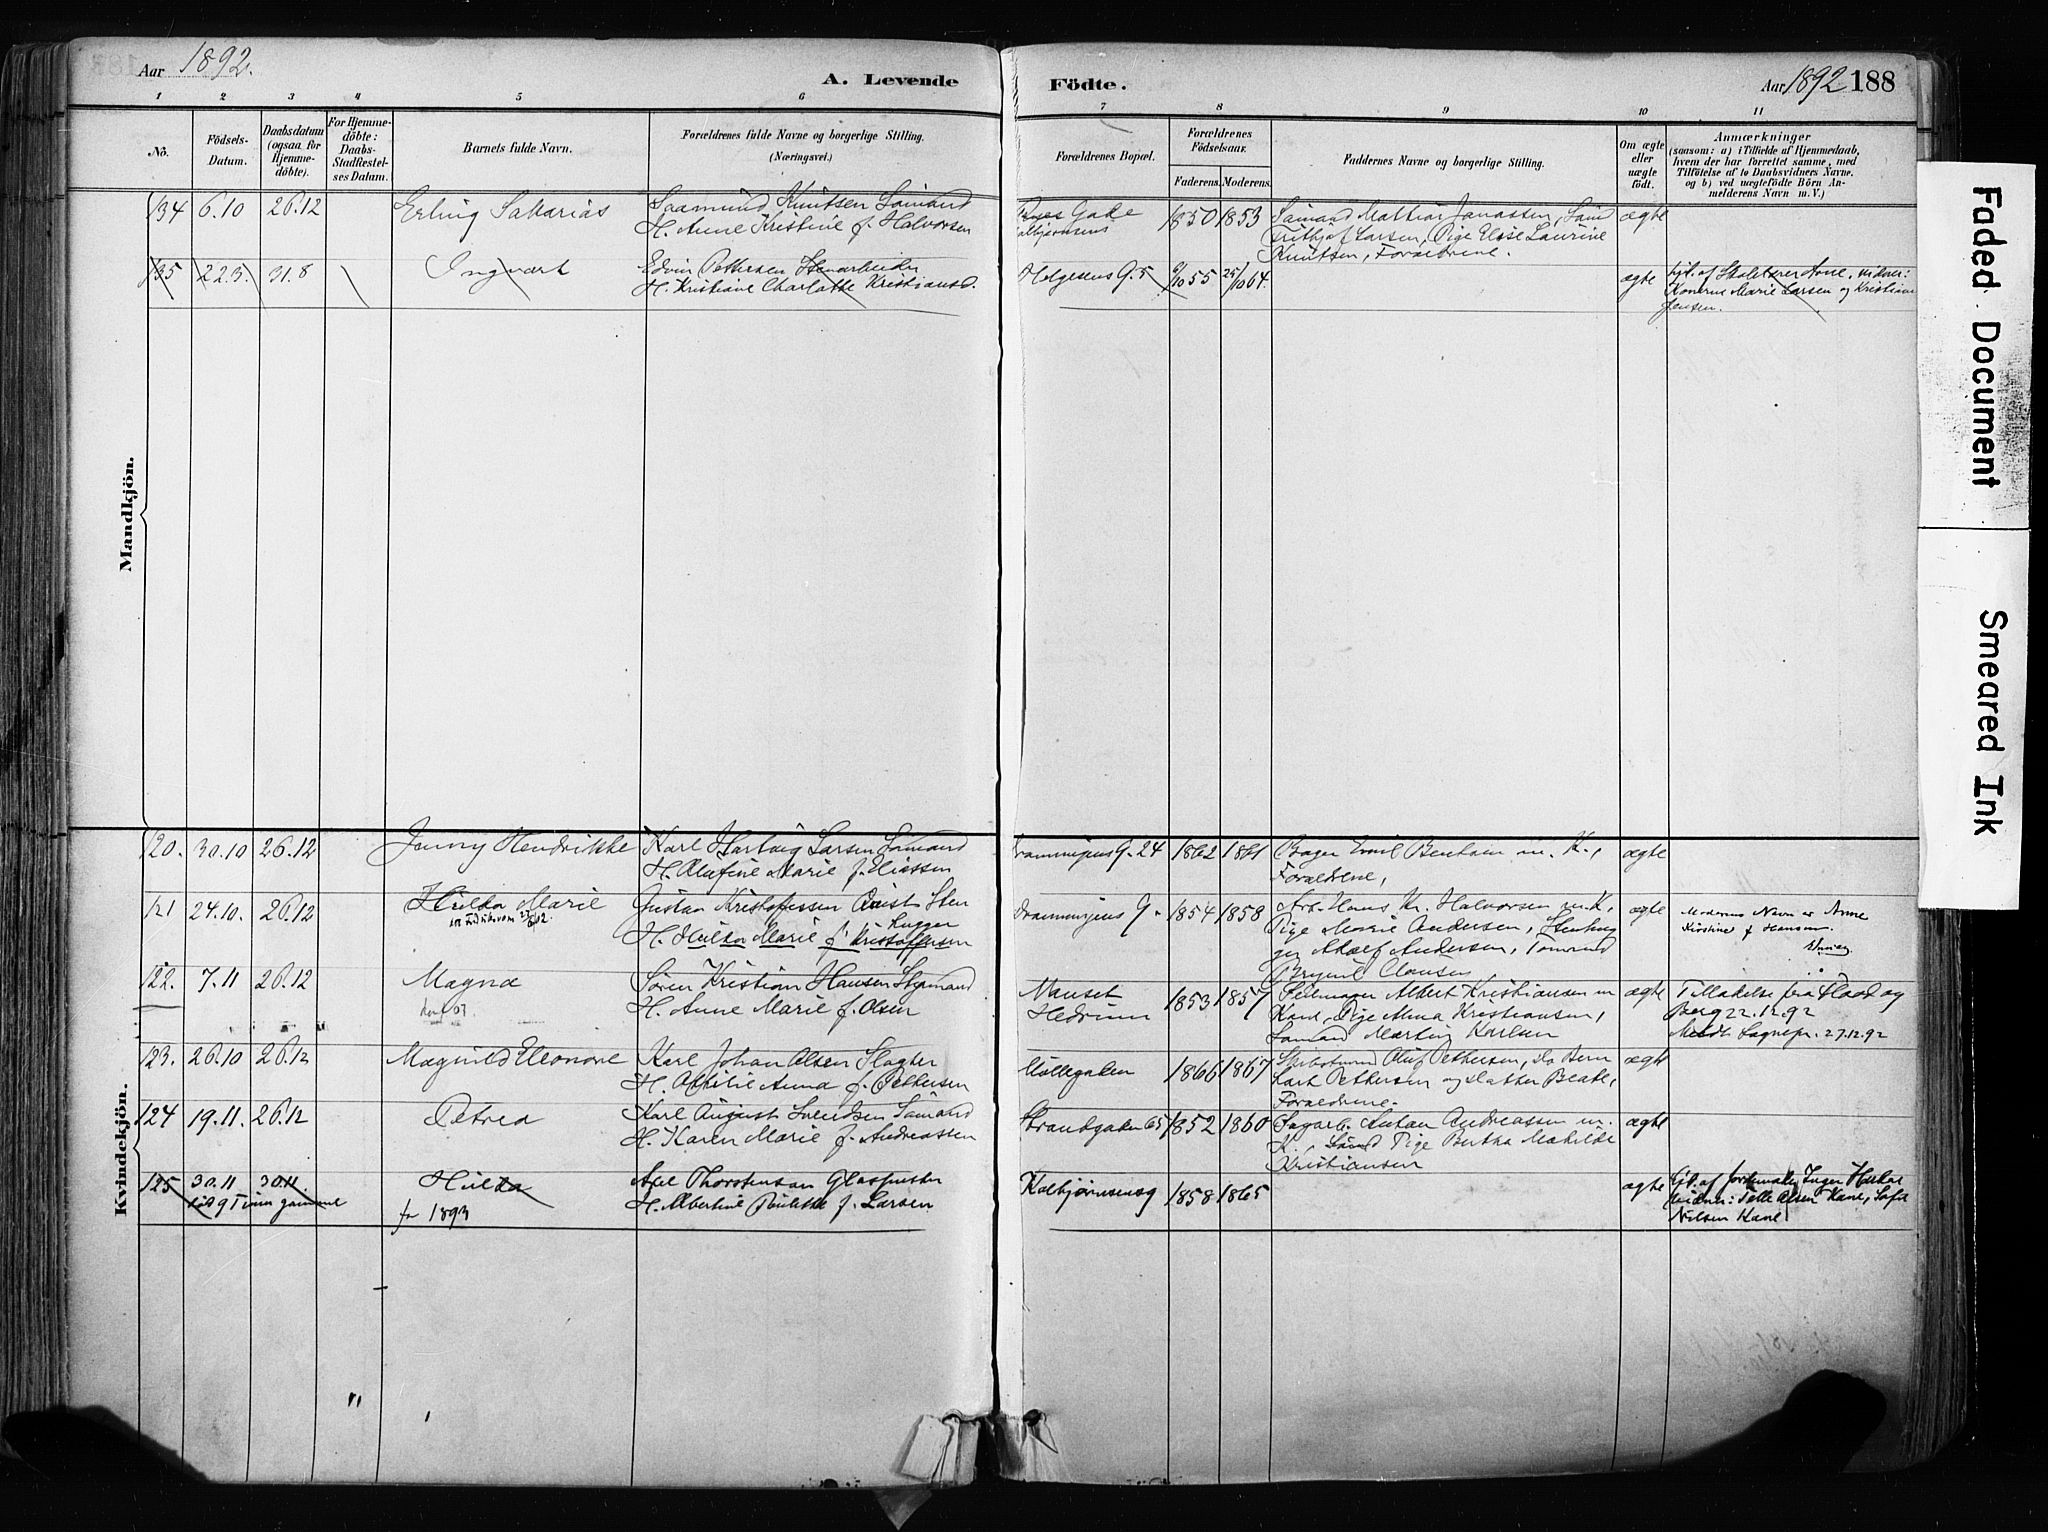 Aar 1892.
A. Levende
Födte.
Aar 1892 188
1 2 3 4 5 6 7 8 9 10 11
No.
Födsels-
Datum.
Daabsdatum
(ogsaa for
Hjemme-
döbte).
For Hjemme-
döbte:
Daabs-
Stadfæstel-
ses Datum.
Barnets fulde Navn.
Forældrenes fulde Navne og borgerlige Stilling.
(Næringsvei.)
Forældrenes Bopæl.
Forældrenes
Födselsaar.
Faderens. Moderens.
Faddernes Navne og borgerlige Stilling.
Om ægte
eller
uægte
født.
Anmærkninger
(saasom: a) i Tilfælde af Hjemmedaab,
hvem der har forrettet samme, med
Tilföielse af to Daabsvidners Navne,
og b) ved uægtefödte Börn An-
melderens Navn m. V.)
Mandkjön.
134 6.10 26.12 Erling Sakarias
Saamund Knutsen Sömand
H. Anne Kristine f. Halvorsen
Gade
1850 1853
Sömand Mathias Jonassen,
Frithjof Larsen, Pige Else Laurine
Knutsen, Forældrene.
ægte
135 22.5. 31.8 Ingvart
Edvin Pettersen Stenarbeider
H. Kristiane Charlotte Kristiansd.
Helgesens G. 5
6/10 55 25/10 64.
ægte
Hjd. af Skolelærer Aove, vidner:
Konerne Marie Larsen og Kristiane
Jensen.
Kvindekjön.
120. 30.10 26.12 Jenny Hendrikke
Karl Hartvig Larsen Sömand
H. Olufine Marie f. Eliassen
G. 24
1862 1861
Bager Emil Bentsen m. K.,
Forældrene,
ægte
121 24.10. 26.12 Hulda Marie
Gustav Kristoffersen Sten
hugger
H. Hulda Marie f. Kristoffersen
G.
1854 1858
Arb. Hans Kr. Halvorsen m. K.
Pige Marie Andersen, Stenhug
ger Adolf Andersen, Tömmd
Brynil Clausen
ægte
Moderens Navn er Anne
Kirstine f Hansen.
122. 7.11 26.12 Magna
Sören Kristian Hansen Styrmand
H. Anne Marie f. Olsen
Nanset
Hedrum
1853 1857
Seilmager Albert Kristiansen m
Kone, Pige Anna Kristiansen,
Sömand Martin Karlsen
ægte
Tilladelse fra Slood og
Berg 22.12.92
Medd. Sognepr. 27.12.92
123. 26.10 26.12 Magnild Eleonore
Karl Johan Olsen Slagter
H. Othilie Anna f. Pettersen
Möllegaden
1866 1867
Skibstmd Oluf Pettersen, Do Bernt
Karl Pettersen og Datter Beate,
Forældrene.
ægte
124 19.11. 26.12 Petrea
Karl August Svendsen Sömand
H. Karen Marie f. Andreassen
Strandgaden 65
1852 1860
Sagarb. Antan Andreassen m.
K., Pige Bertha Mathilde
Kristiansen
ægte
125 30.11 30.11. Hulda
död 9 Timer gammel
for 1893
Axel Thorstensen Glaspuster
H. Albertine f. Larsen
Kolbjørnsensg
1858 1865
ægte
Hjd. af Jordemoder Inger
Vidner: Olsen Kone, Sofie
Nilsen Kone
Faded Document
Smeared Ink